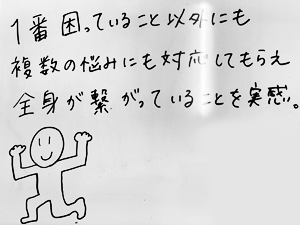 1番困っていること以外にも
複数の悩みにも対応してもらえ
全身が繋がっていることを実感。